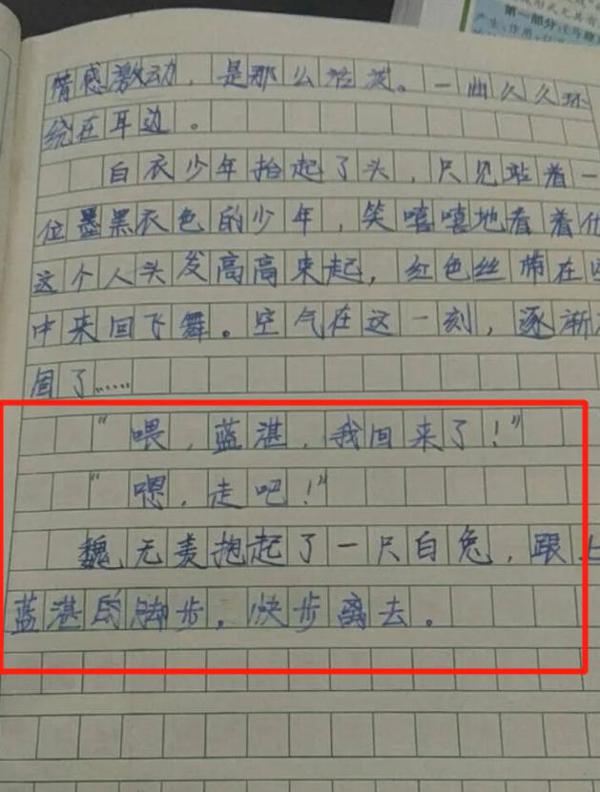 第一部分
产生、作用、
情感激动，是那么活泼。一曲久久环
绕在耳边。
白衣少年抬起了头，只见站着一
位墨黑衣色的少年，笑嘻嘻地看着他
这个人头发高高束起，红色丝带在空
中来回飞舞。空气在这一刻，逐渐
固了……
“喂，蓝湛，我回来了！”
“嗯，走吧！”
魏无羡抱起了一只白兔，跟上
蓝湛的脚步，快步离去。